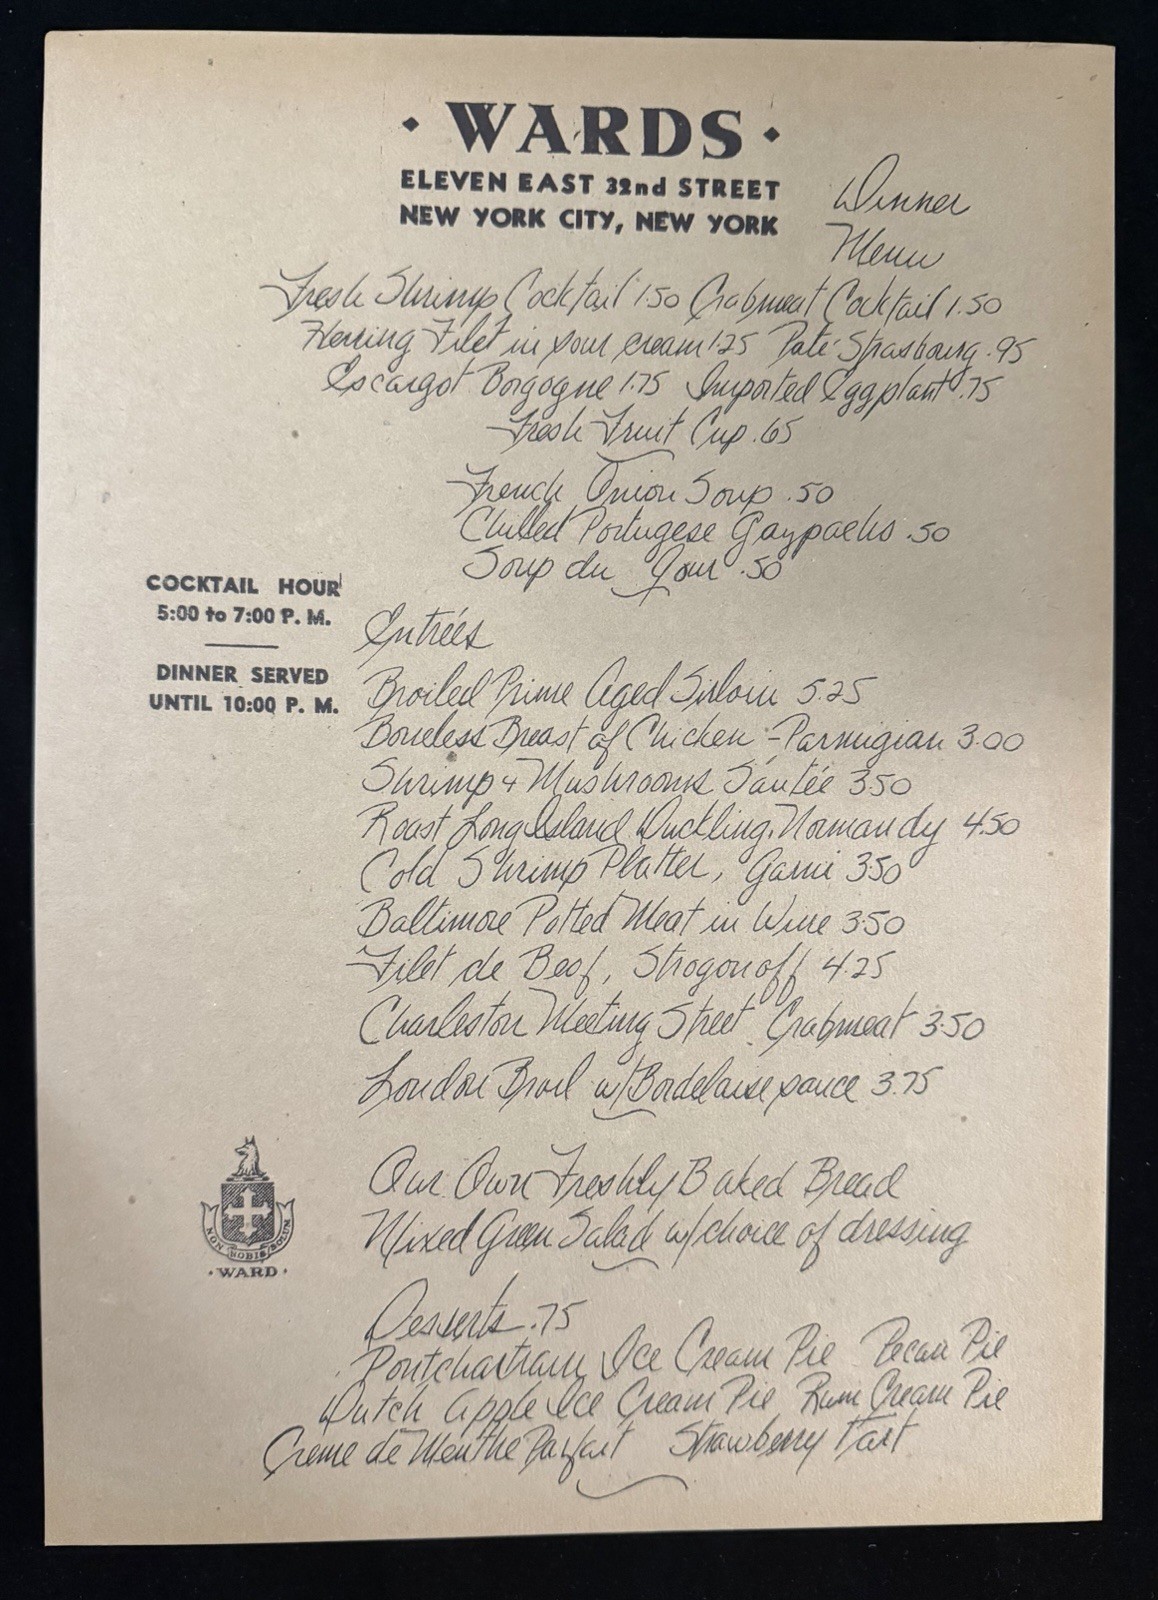 · WARDS ·
ELEVEN EAST 32nd STREET
NEW YORK CITY, NEW YORK
Dinner
Menu
Fresh Shrimp Cocktail 1.50 Crabmeat Cocktail 1.50
Herring Filet in sour cream 1.25 Paté Strasbourg .95
Escargot Borgogne 1.75 Imported Eggplant .75
Fresh Fruit Cup .65
French Onion Soup .50
Chilled Portugese Gazpacho .50
Soup du Jour .50
COCKTAIL HOUR
5:00 to 7:00 P. M.
DINNER SERVED
UNTIL 10:00 P. M.
Entrées
Broiled Prime Aged Sirloin 5.25
Boneless Breast of Chicken - Parmigian 3.00
Shrimp & Mushrooms Sautée 3.50
Roast Long Island Duckling, Normandy 4.50
Cold Shrimp Platter, Garni 3.50
Baltimore Potted Meat in Wine 3.50
Filet de Beof, Strogonoff 4.25
Charleston Meeting Street Crabmeat 3.50
London Broil w/Bordelaise sauce 3.75
Our Own Freshly Baked Bread
Mixed Green Salad w/choice of dressing
NON NOBIS SOLUM
· WARD ·
Desserts .75
Pontchartrain Ice Cream Pie Pecan Pie
Dutch Apple Ice Cream Pie Rum Cream Pie
Creme de Menthe Parfait Strawberry Tart